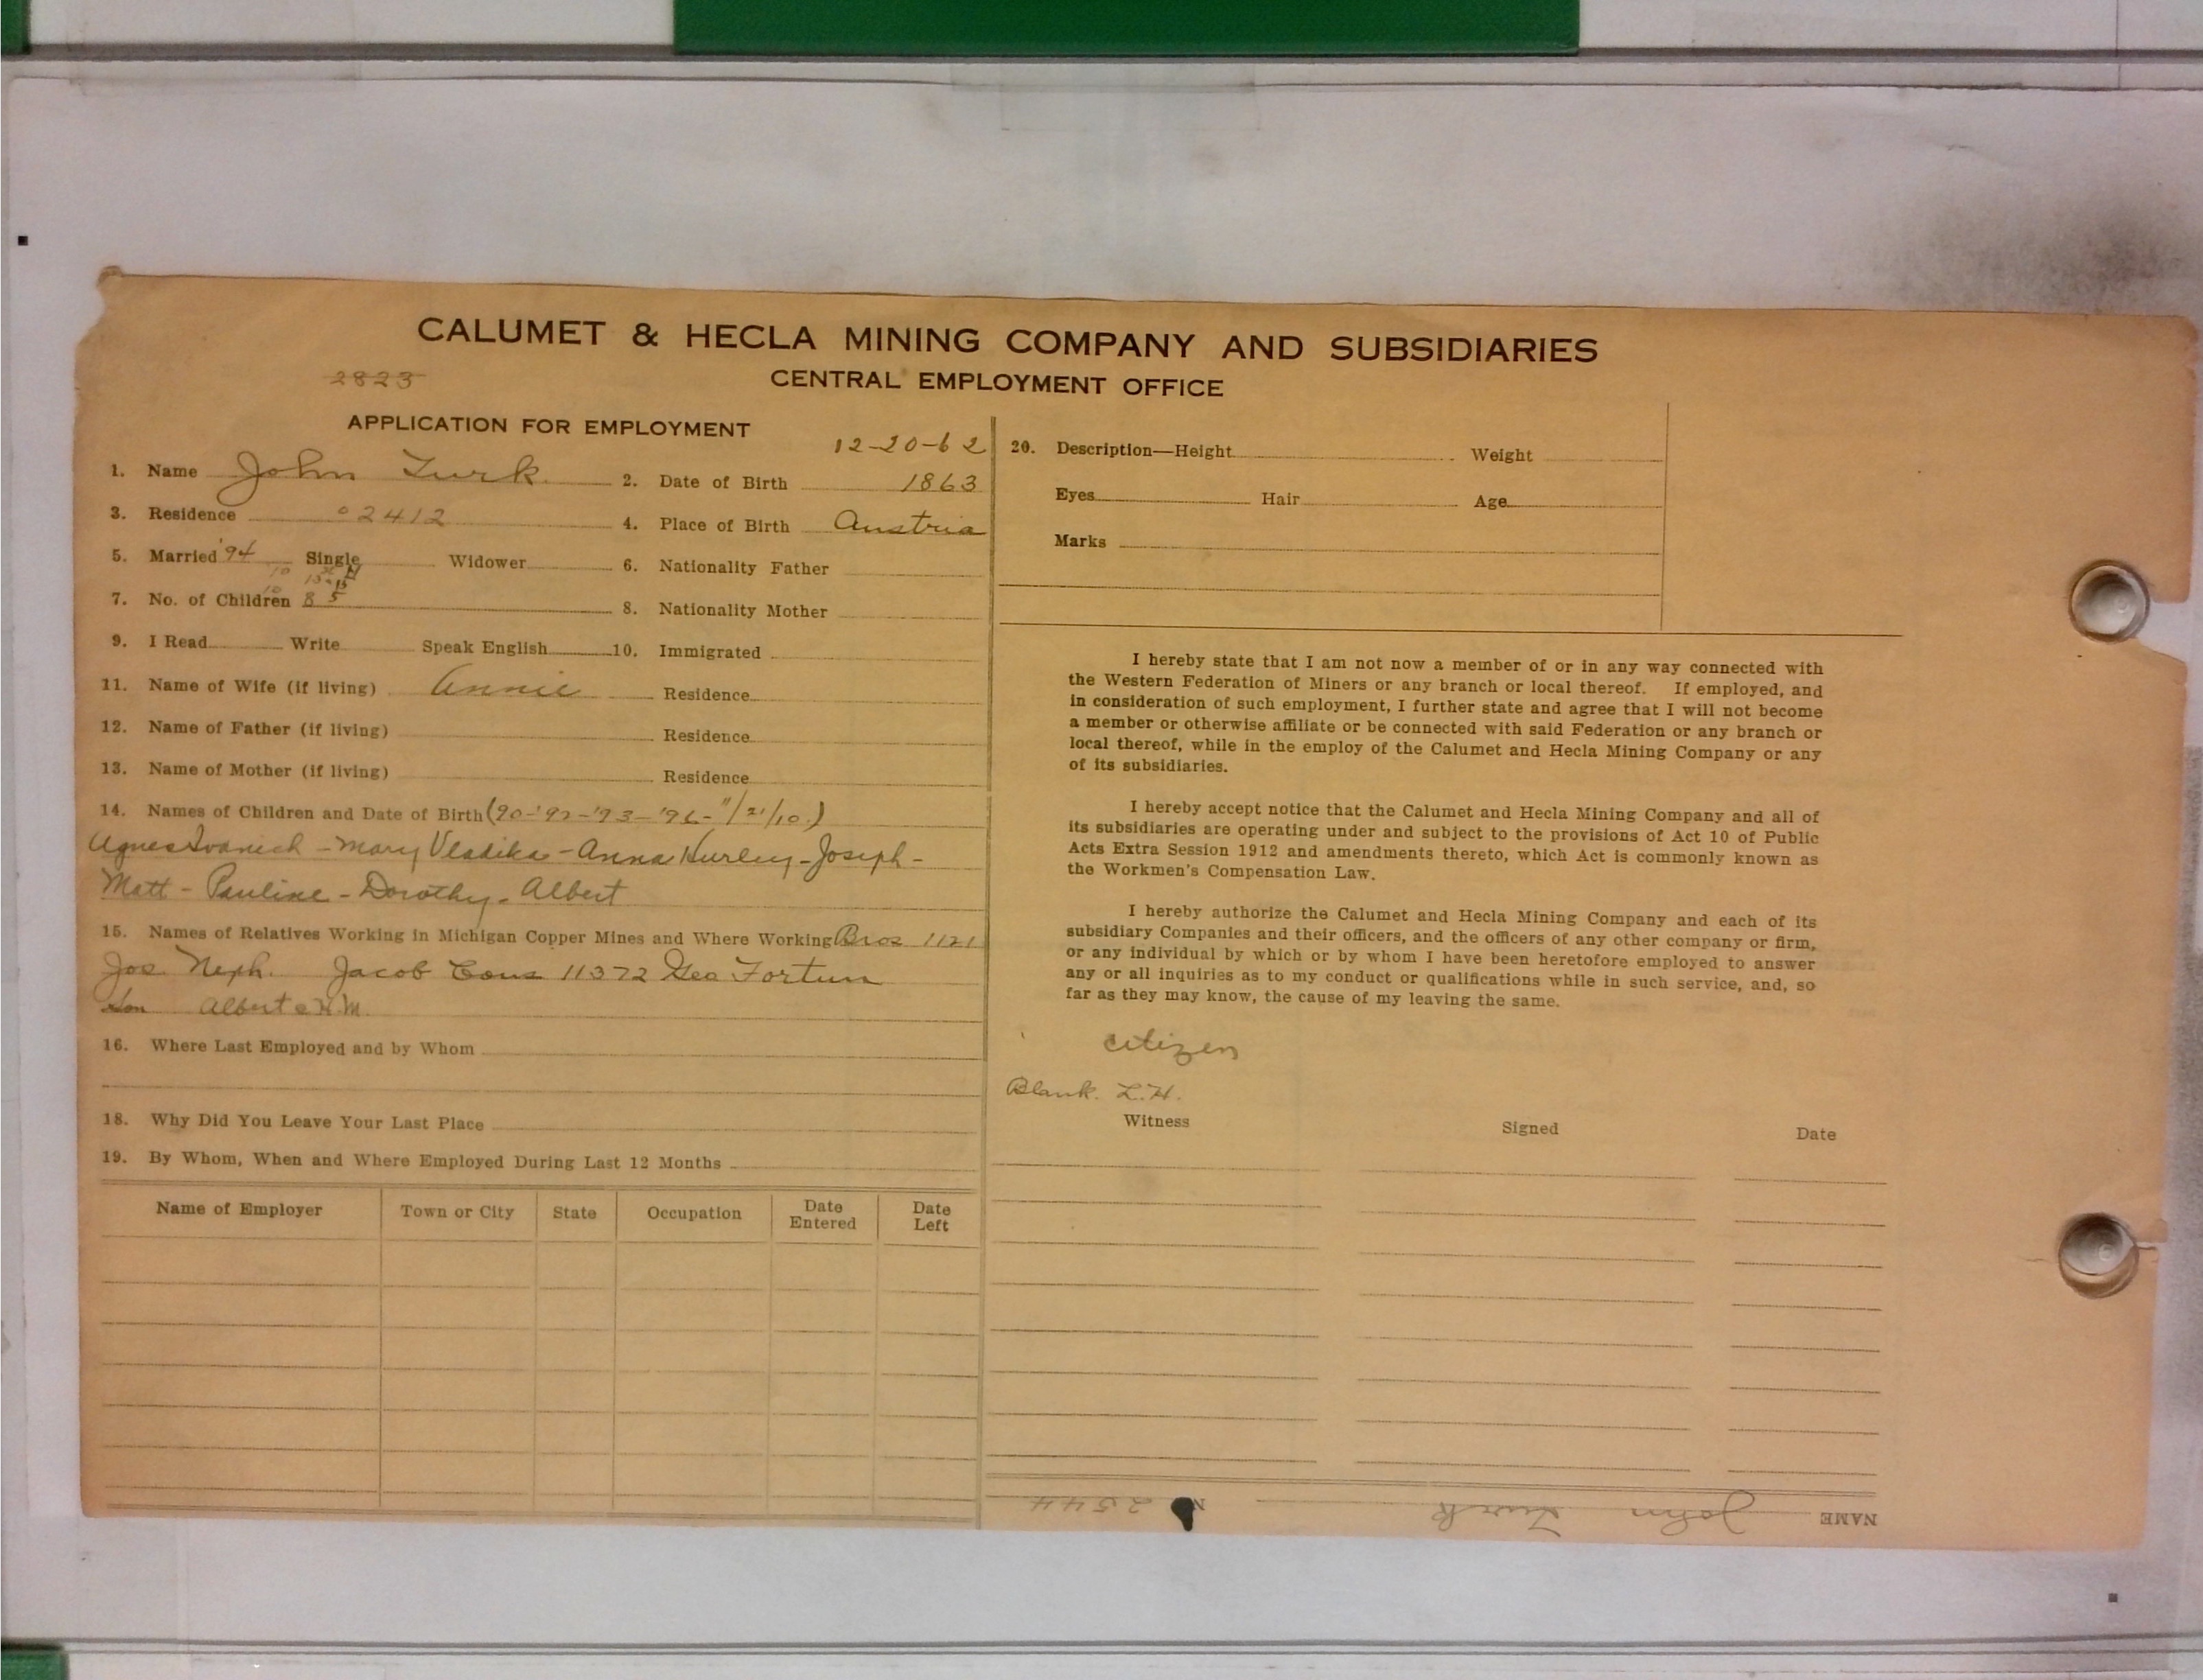 CALUMET & HECLA MINING COMPANY AND SUBSIDIARIES
2823
CENTRAL EMPLOYMENT OFFICE
APPLICATION FOR EMPLOYMENT
12-20-62
1. Name John Turk 2. Date of Birth 1863
3. Residence 02412 4. Place of Birth Austria
5. Married '94 Single Widower 6. Nationality Father
7. No. of Children 8 5 8. Nationality Mother
9. I Read Write Speak English 10. Immigrated
11. Name of Wife (if living) Annie Residence
12. Name of Father (if living) Residence
13. Name of Mother (if living) Residence
14. Names of Children and Date of Birth (90-'92-'93-'96-11/21/10.)
Agnes Ivanich - Mary Vladika - Anna Hurley - Joseph -
Matt - Pauline - Dorothy - Albert
15. Names of Relatives Working in Michigan Copper Mines and Where Working Bros 1121
Jos. Neph. Jacob Cous 11372 Geo Fortun
Son Albert
16. Where Last Employed and by Whom
18. Why Did You Leave Your Last Place
19. By Whom, When and Where Employed During Last 12 Months
Name of Employer Town or City State Occupation Date Entered Date Left
20. Description—Height Weight
Eyes Hair Age
Marks
I hereby state that I am not now a member of or in any way connected with
the Western Federation of Miners or any branch or local thereof. If employed, and
in consideration of such employment, I further state and agree that I will not become
a member or otherwise affiliate or be connected with said Federation or any branch or
local thereof, while in the employ of the Calumet and Hecla Mining Company or any
of its subsidiaries.
I hereby accept notice that the Calumet and Hecla Mining Company and all of
its subsidiaries are operating under and subject to the provisions of Act 10 of Public
Acts Extra Session 1912 and amendments thereto, which Act is commonly known as
the Workmen's Compensation Law.
I hereby authorize the Calumet and Hecla Mining Company and each of its
subsidiary Companies and their officers, and the officers of any other company or firm,
or any individual by which or by whom I have been heretofore employed to answer
any or all inquiries as to my conduct or qualifications while in such service, and, so
far as they may know, the cause of my leaving the same.
citizen
Blank. L.H.
Witness Signed Date
NAME John Turk N 2544